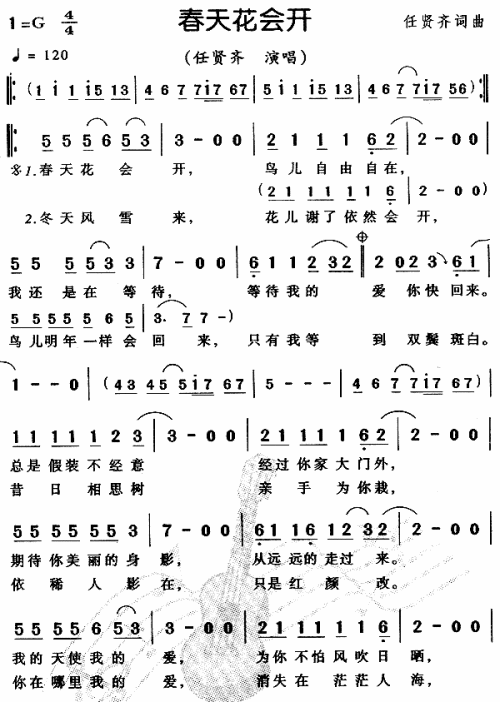 春天花会开
1=G 4/4
任贤齐词曲
♩=120
(任贤齐 演唱)
‖:(1 1 i5 13 | 4 67 7i7 67 | 5i 1 i5 13 | 4 67 7i7 56):‖
‖: 5 5 56 53 | 3-00 | 21 1 1 62 | 2-00 |
1.春天花 会 开, 鸟儿 自由 自在,
(21 11 11 6 | 2-00)
2.冬天风 雪 来, 花儿谢了依然会 开,
55 5533 | 7-00 | 611232 | 2 023 61 |
我还 是在 等待, 等待我的 爱 你快回来。
55 55 5 65 | 3· 7 7-)
鸟儿明年一样会 回 来, 只有我等 到 双鬓斑白。
1--0 | (43 45 5i7 67 | 5--- | 4 67 7i7 67) |
11 11 11 23 | 3-00 | 21 11 1 62 | 2-00 |
总是 假装 不经意 经过 你家 大门外,
昔日 相思树 亲手 为你栽,
55 55 55 53 | 7-00 | 61 16 123 232 | 2-00 |
期待 你美丽的 身 影, 从远 远的 走过 来。
依稀 人影 在, 只是 红颜 改。
55 55 6 53 | 3-00 | 21 11 1 62 | 2-00 |
我的 天使 我的 爱, 为你 不怕 风吹 日 晒,
你在 哪里 我的 爱, 消失 在 茫茫 人 海,